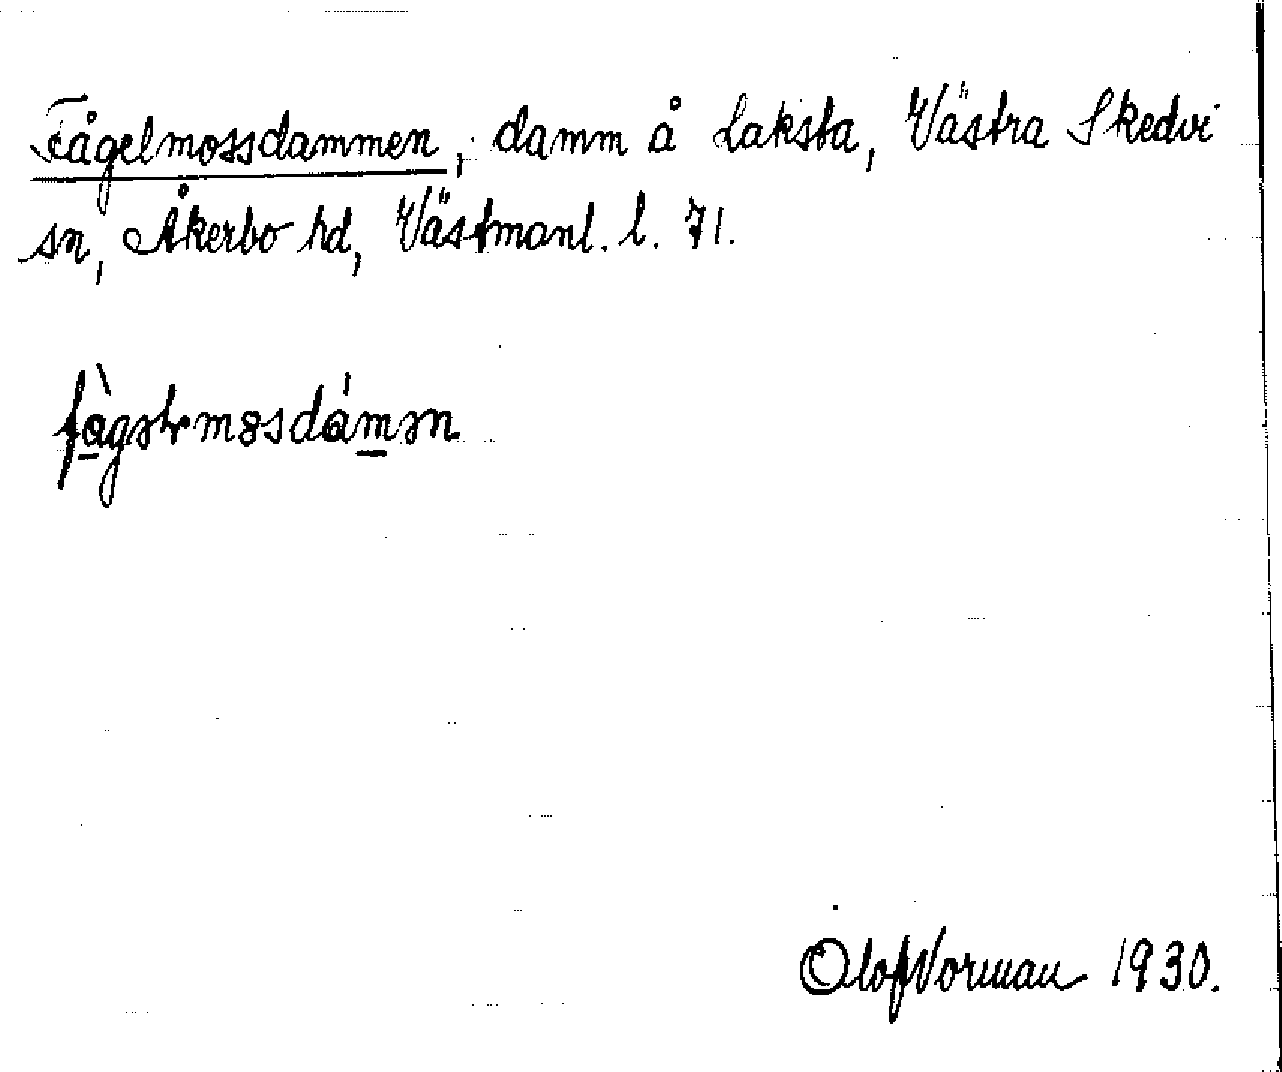 Fågelmossdammen, damm å Laksta, Västra Skedvi
sn, Åkerbo hd, Västmanl. l. 71.
Olof Norman 1930.